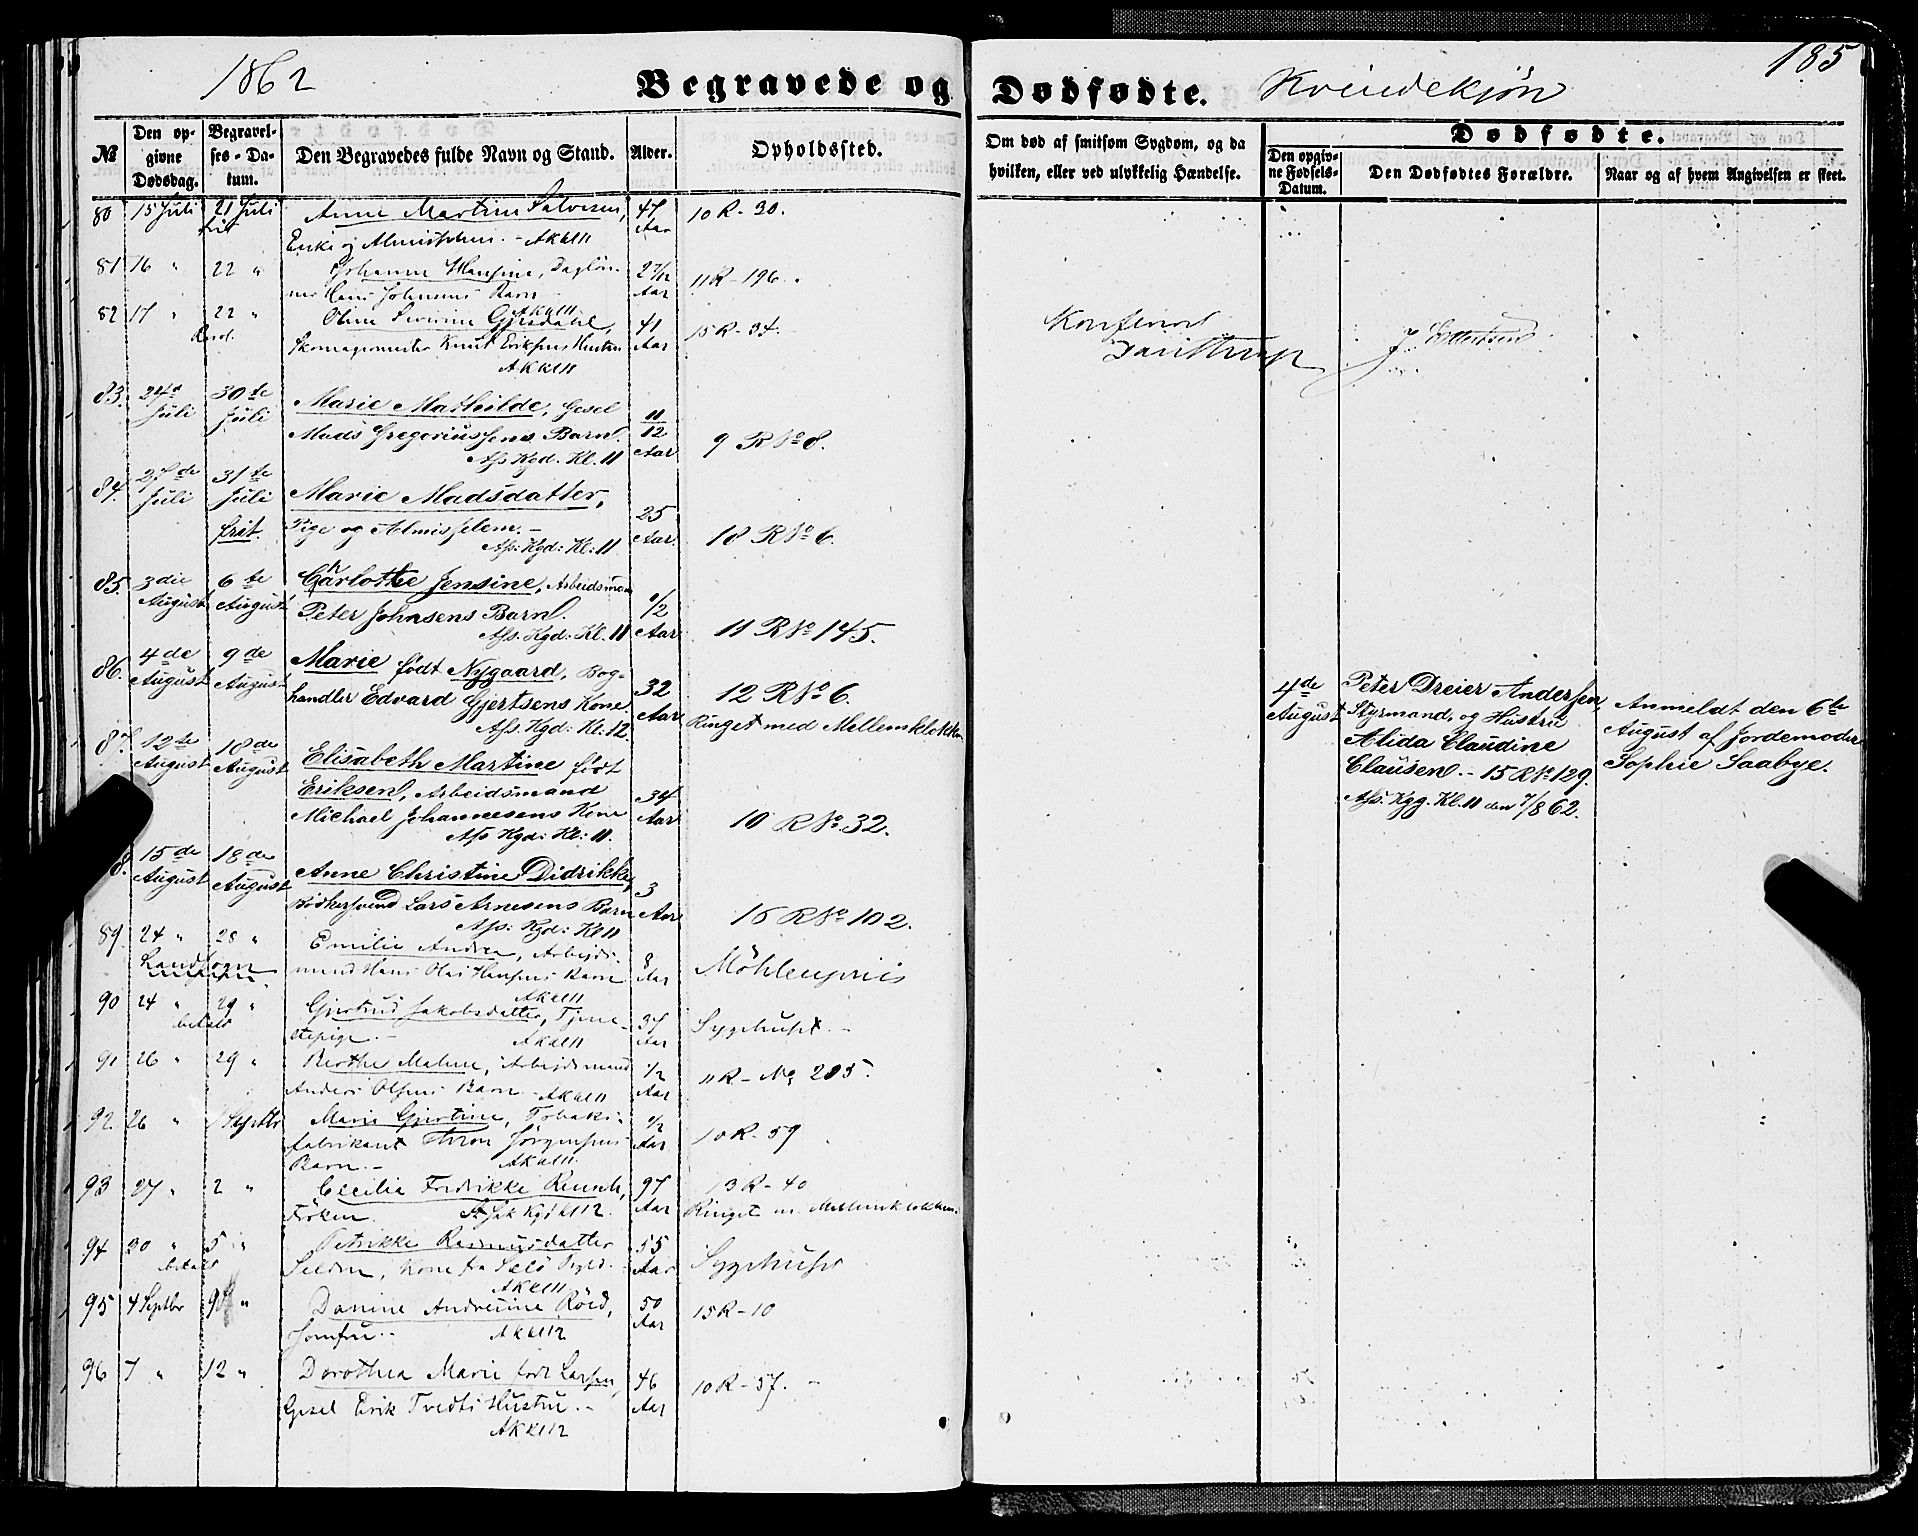 1862
Begravede og Dødfødte. Kvindekjøn
185
№
Den opgivne Dødsdag.
Begravelses-Datum.
Den Begravedes fulde Navn og Stand.
Alder.
Opholdssted.
Om død af smitsom Sygdom, og da hvilken, eller ved ulykkelig Hændelse.
Dødfødte.
Den opgivne Fødsels-Datum.
Den Dødfødtes Forældre.
Naar og af hvem Angivelsen er skeet.
80 15 Juli 21 Juli Anne Martine Salvesen, 47 Aar 10 R - 30.
frit Enke og Almisselem. - A K kl 11
81 16 " 22 " Johanne Hansine, Dagløn- 2 7/12 Aar 11 R - 196.
ner Hans Johnsens Barn
A K kl 11
82 17 " 22 " Oline Severine Gjesdahl, 41 Aar 15 R - 34.
Skomagermester Knut Eriksens Hustru
A K kl 11
83. 24de Juli 30te Juli Marie Mathilde, Gesel 11/12 Aar 9 R № 8.
Mads Gregoriussens Barn.
Ass. Kgd. Kl. 11
84. 27de Juli 31te Juli Marie Madsdatter, 25 Aar. 18 R № 6.
frit. Pige og Almisselem. -
Ass. Kgd: Kl: 11
85. 3die August 6te August Charlotte Jensine, Arbeidsman 1/2 Aar 11 R № 145.
Peter Johnsens Barn.
Ass. Kgd: Kl. 11
86. 4de August 9de August Marie født Nygaard, Bog- 32 Aar 12 R № 6.
handler Edvard Gjertsens Kone.
Ass. Kgd: Kl: 12. Ringet med Mellemklokken
87. 12te August 18de August Elisabeth Martine født 34 Aar 10 R № 32.
Eriksen, Arbeidsmand
Michael Johannesens Kone
Ass Kgd: Kl: 11.
8. 15de August 18de August Anne Christine Didrikke, 3 Aar 16 R № 102.
Bødkersvend Lars Arnesens Barn
Ass: Kgd: Kl 11
89. 24 " 28 " Emilie Andrea, Arbejds- 8 Aar Möhlenpriis
Landsogn mand Hans Olai Hansens Barn
A K kl 11
90 24 " 29 " Gjertrud Jakobsdatter, Tjene- 37 Aar Sygehuset. -
betalt stepige. - A K kl 11
91 26 " 29 " Berthe Malene, Arbejdsmand 1/2 Aar 11 R - № 205.
Anders Olsens Barn - A K kl 11
92. 26 " 1 Septbr Marie Gjertine, Tobaks- 1/2 Aar 10 R - 59
fabrikant Aron Jörgensens
Barn. - A K kl 11.
93 27 " 2 " Cecilia Fredrikke Reusch, 97 Aar 13 R - 40
Fröken. St Jak Kgd kl 12. Ringet m. Mellemklokken.
94 30 " 5 " Petrikke Rasmusdatter 55 Aar Sygehuset
betalt
A K kl 11
95 4 Septbr 9 " Danine Andreine Röed, 50 Aar 15 R - 10
Jomfru. - A K kl 12
96 7 " 12 " Dorothea Marie født Larsen, 46 Aar 10 R - 57. -
Gesel Erik Tvedts Hustru. -
A K kl 12
4de August
Peter Dreier Andersen,
Styrmand, og Hustru
Alida Claudine
Clausen. - 15 R № 129.
Ass. Kgg. Kl. 11 den 7/8 62.
Anmeldt den 6te
August af Jordemoder
Sophie Saabye.